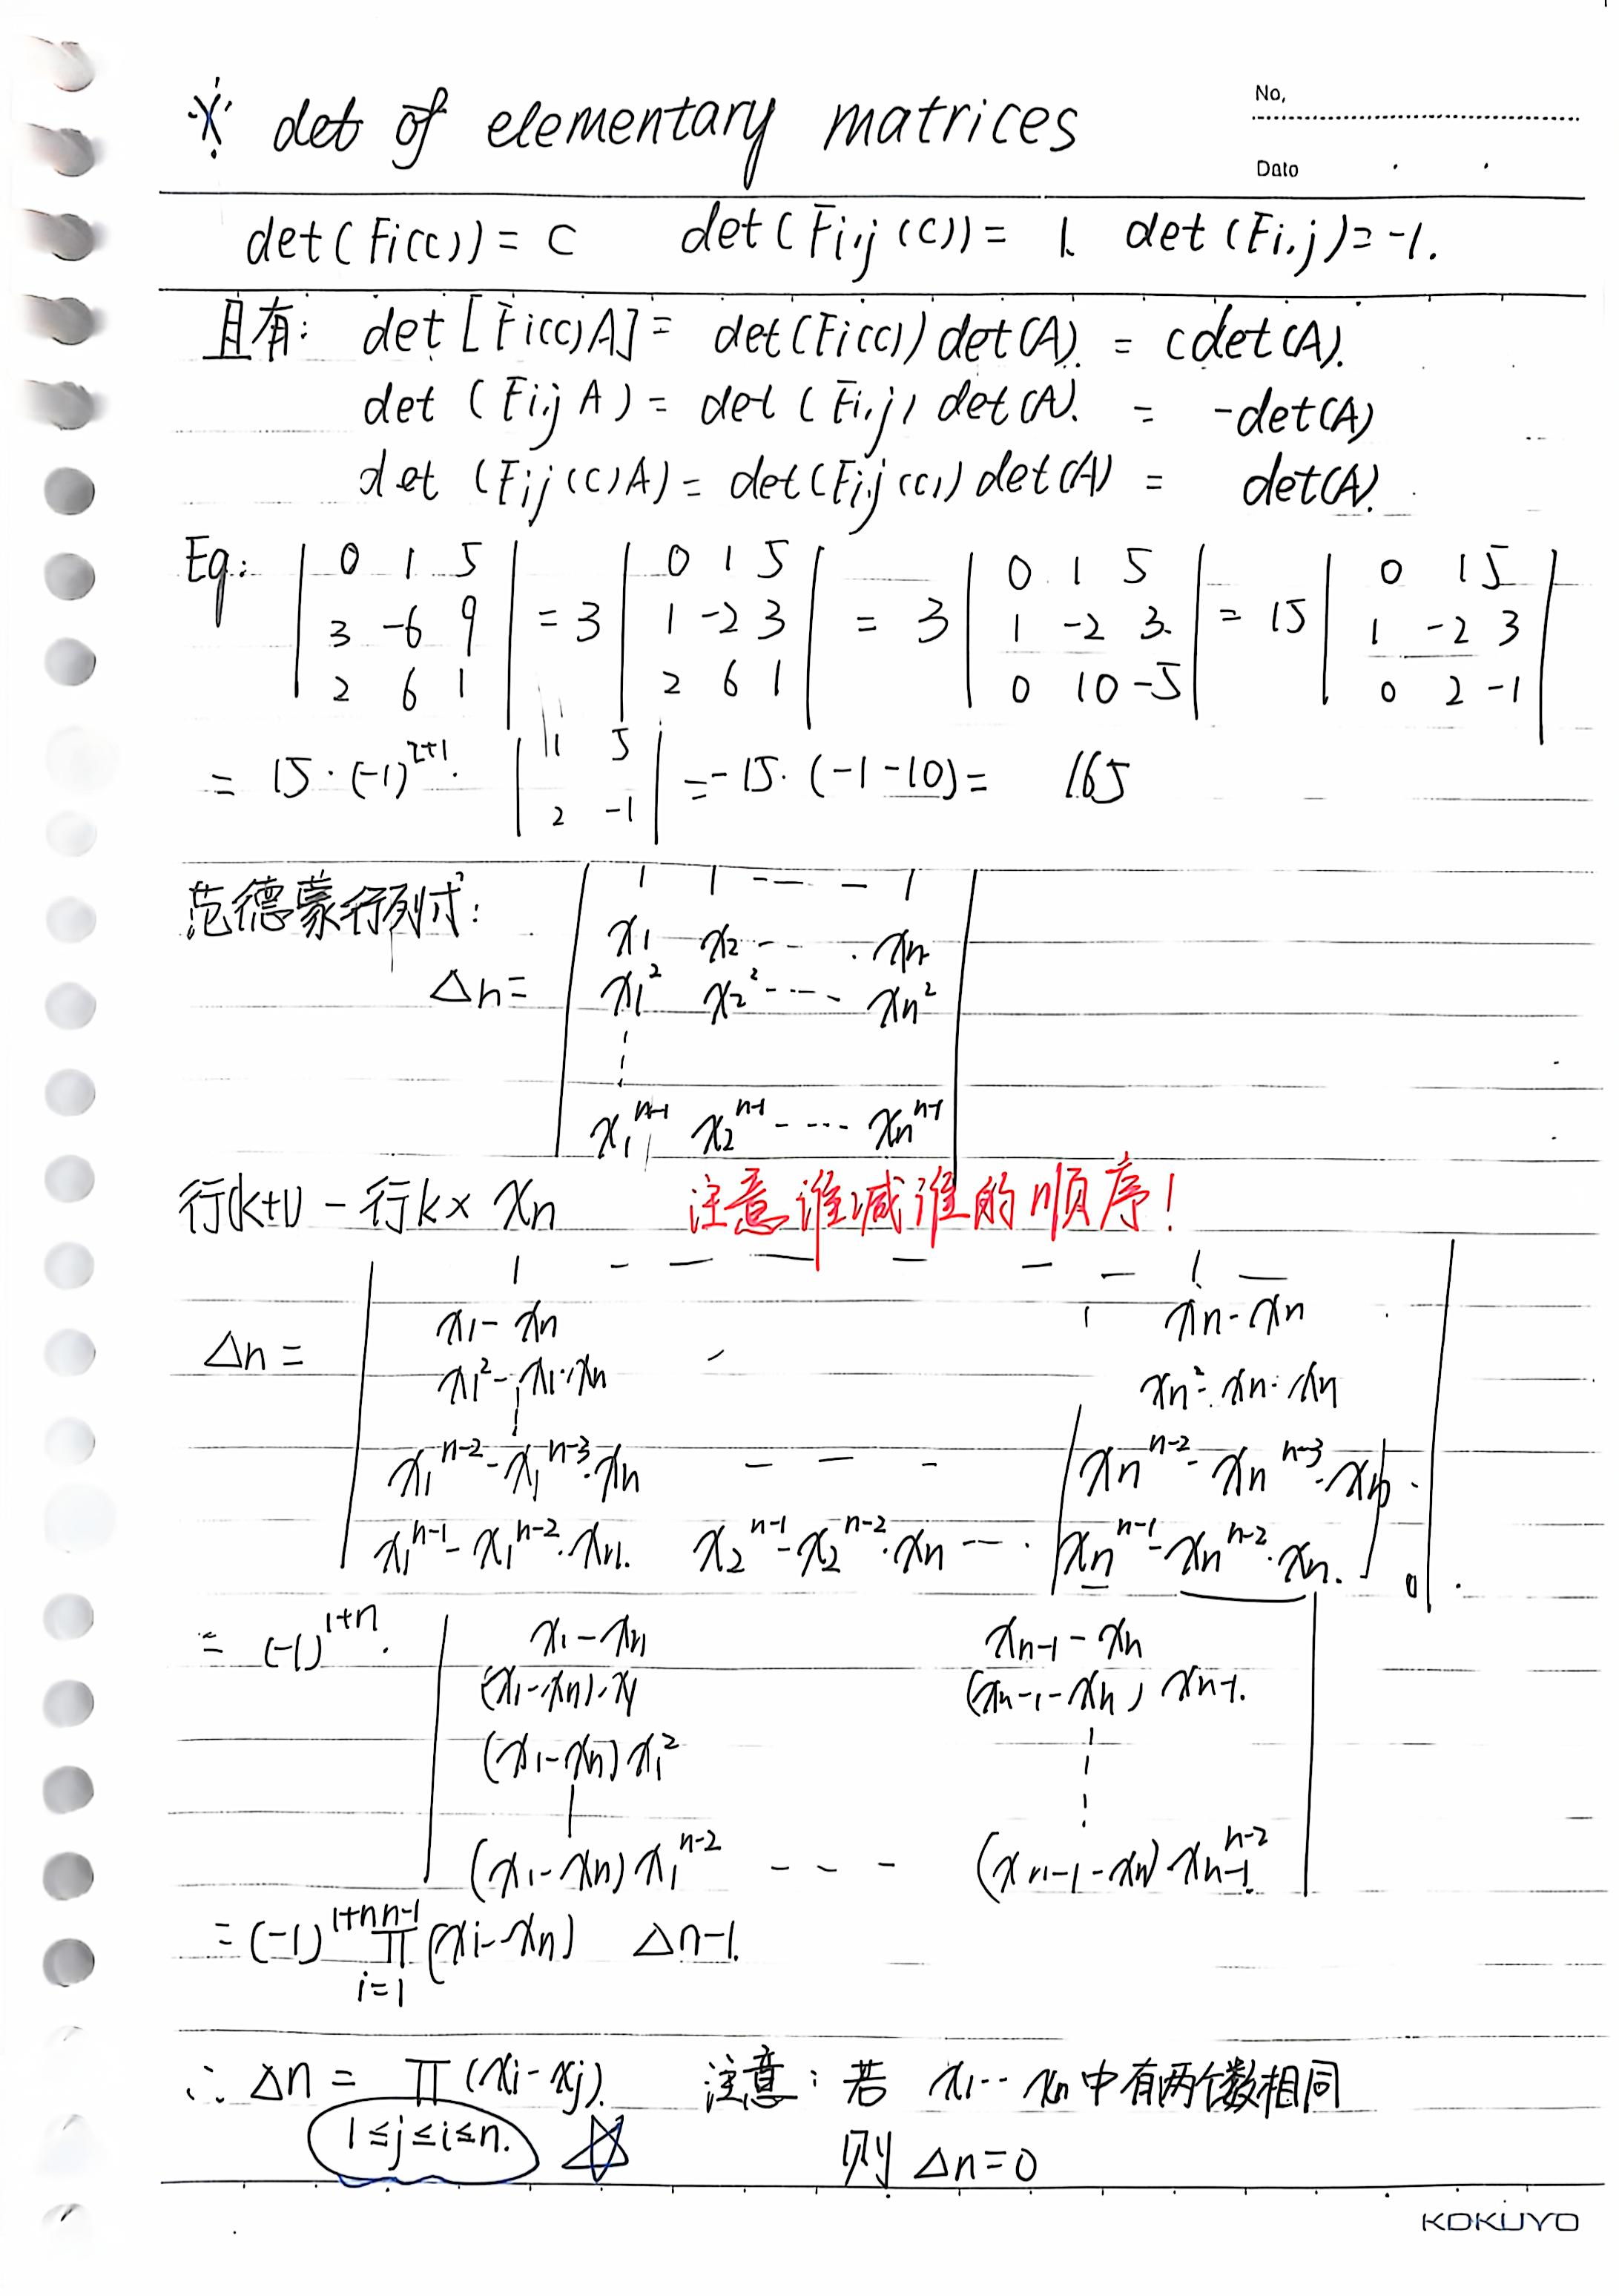 ※ det of elementary matrices
No,
Date
det(Fi(c)) = c det(Fi,j(c)) = 1. det(Fi,j) = -1.
且有: det[Fi(c)A] = det(Fi(c)) det(A). = cdet(A).
det (Fi,j A) = det (Fi,j) det(A). = -det(A)
det (Fij(c)A) = det(Fi,j(c)) det(A) = det(A).
Eg: | 0 1 5 | = 3 | 0 1 5 | = 3 | 0 1 5 | = 15 | 0 1 5 |
| 3 -6 9 | | 1 -2 3 | | 1 -2 3 | | 1 -2 3 |
| 2 6 1 | | 2 6 1 | | 0 10 -5 | | 0 2 -1 |
= 15·(-1)^{2+1}· | 1 5 | = -15·(-1-10) = 165
| 2 -1 |
范德蒙行列式:
| 1 1 ---- 1 |
| x1 x2 ---- xn |
Δn = | x1^2 x2^2 ---- xn^2 |
⋮
| x1^{n-1} x2^{n-1} ---- xn^{n-1} |
行(k+1) - 行k × xn 注意谁减谁的顺序!
| 1 - - - - - - 1 - |
| x1 - xn xn - xn |
Δn = | x1^2 - x1·xn xn^2 - xn·xn |
⋮
| x1^{n-2} - x1^{n-3}·xn - - - xn^{n-2} - xn^{n-3}·xn |
| x1^{n-1} - x1^{n-2}·xn. x2^{n-1} - x2^{n-2}·xn ---· xn^{n-1} - xn^{n-2}·xn. | 0
= (-1)^{1+n}· | x1 - xn xn-1 - xn |
| (x1 - xn)·x1 (xn-1 - xn) xn-1. |
| (x1 - xn) x1^2 ⋮ |
| (x1 - xn) x1^{n-2} - - - (xn-1 - xn) xn-1^{n-2} |
= (-1)^{1+n} ∏_{i=1}^{n-1} (xi - xn) Δn-1.
∴ Δn = ∏ (xi - xj). 注意: 若 x1·· xn 中有两个数相同
1 ≤ j ≤ i ≤ n. ☆ 则 Δn = 0
KOKUYO